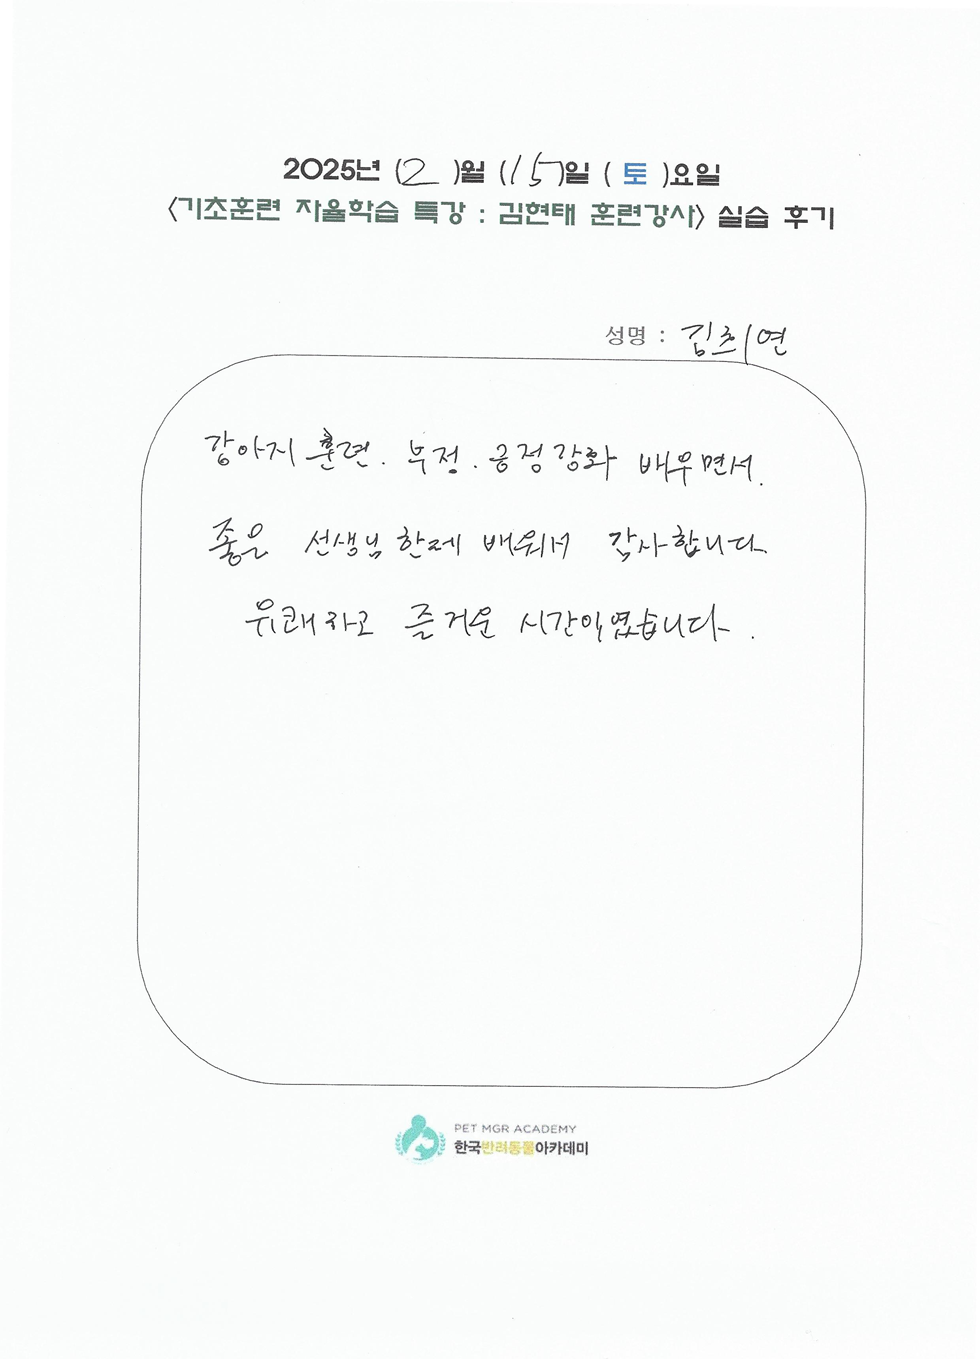 2025년 ( 2 )월 ( 15 )일 ( 토 )요일
<기초훈련 자율학습 특강 : 김현태 훈련강사> 실습 후기
성명 : 김최연
강아지 훈련. 부정. 긍정강화 배우면서.
좋은 선생님 한테 배워서 감사합니다.
유쾌하고 즐거운 시간이였습니다.
PET MGR ACADEMY
한국반려동물아카데미